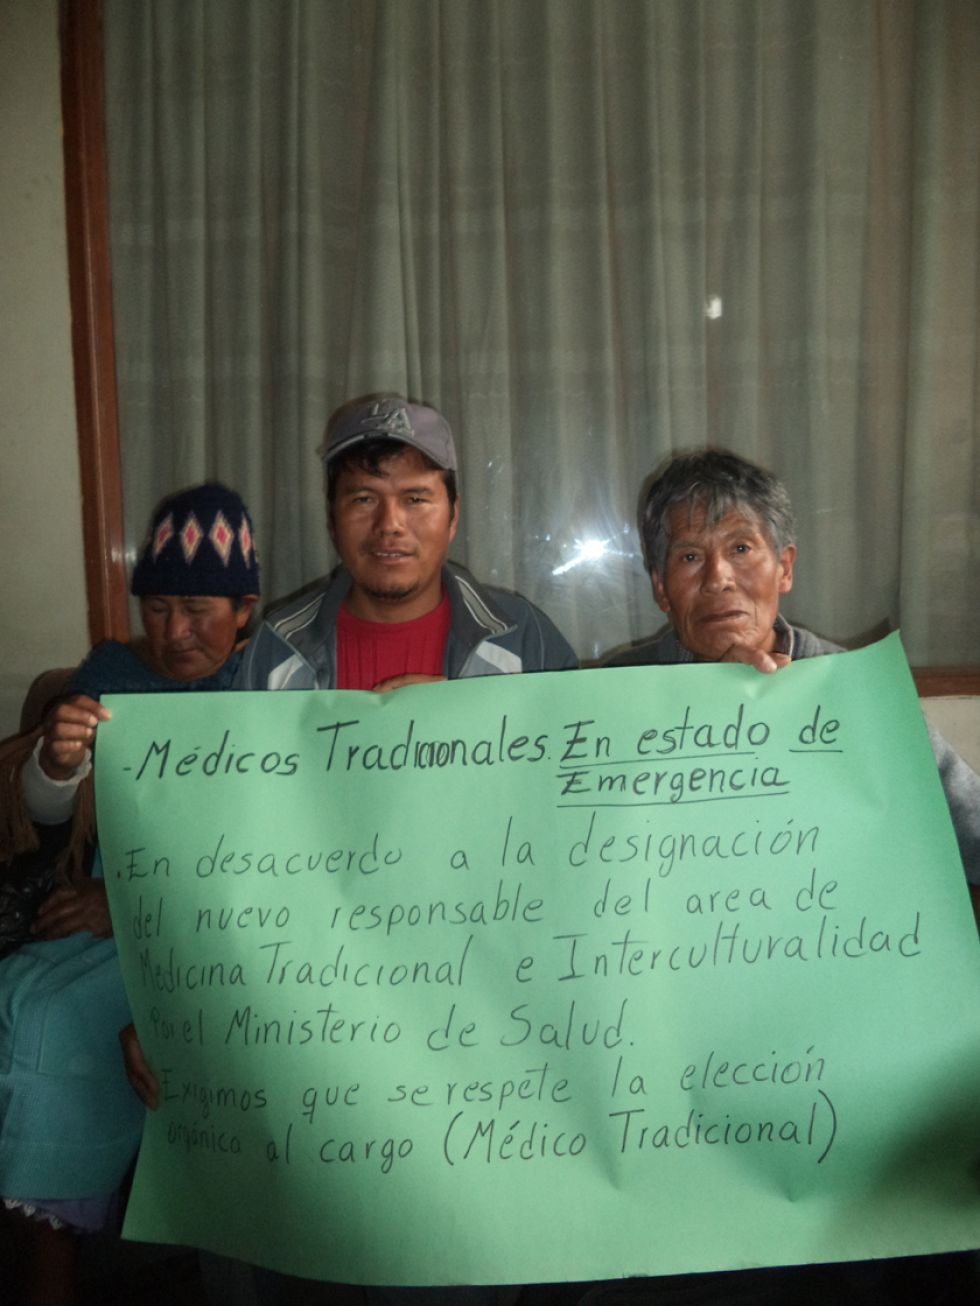 - Médicos Tradicionales. En estado de
Emergencia
. En desacuerdo a la designación
del nuevo responsable del area de
Medicina Tradicional e Interculturalidad
Por el Ministerio de Salud.
Exigimos que se respete la elección
orgánica al cargo (Médico Tradicional)